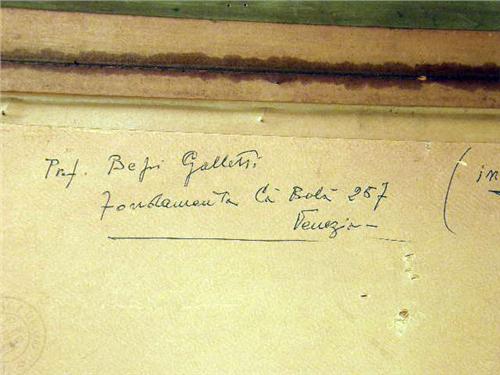 Prof. Bepi Galletti
Fondamenta Cà Balà 257
Venezia
(in